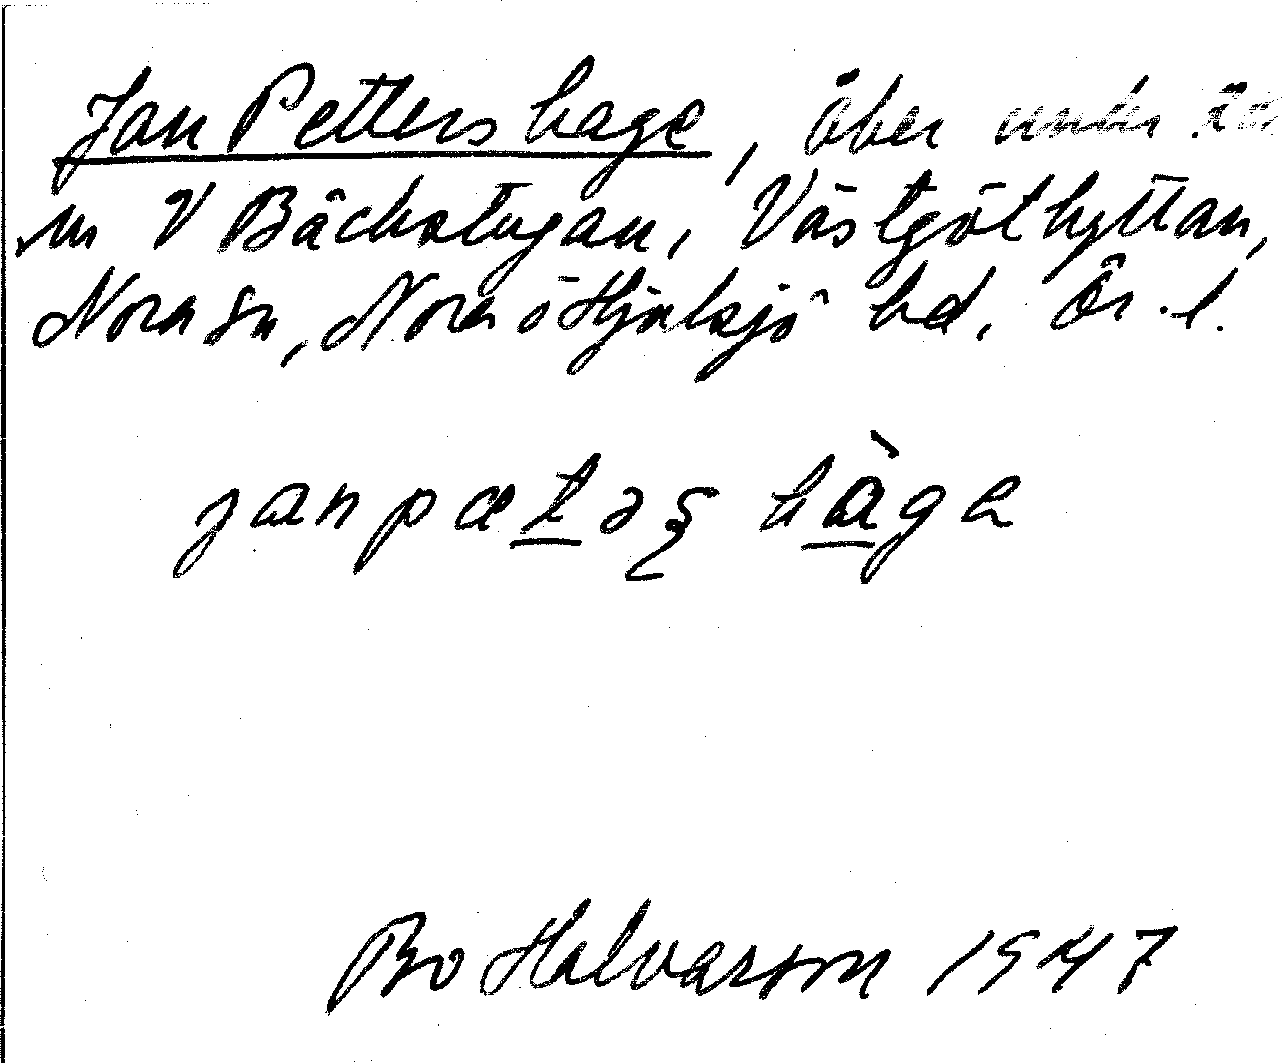 Jan Petters hage, åker under
m V Bäckstugan, Västgöthyttan,
Nora sn, Nora o Hjulsjö hd. Ör. l.
janpætəʂ hàge
Bo Halvarson 1947